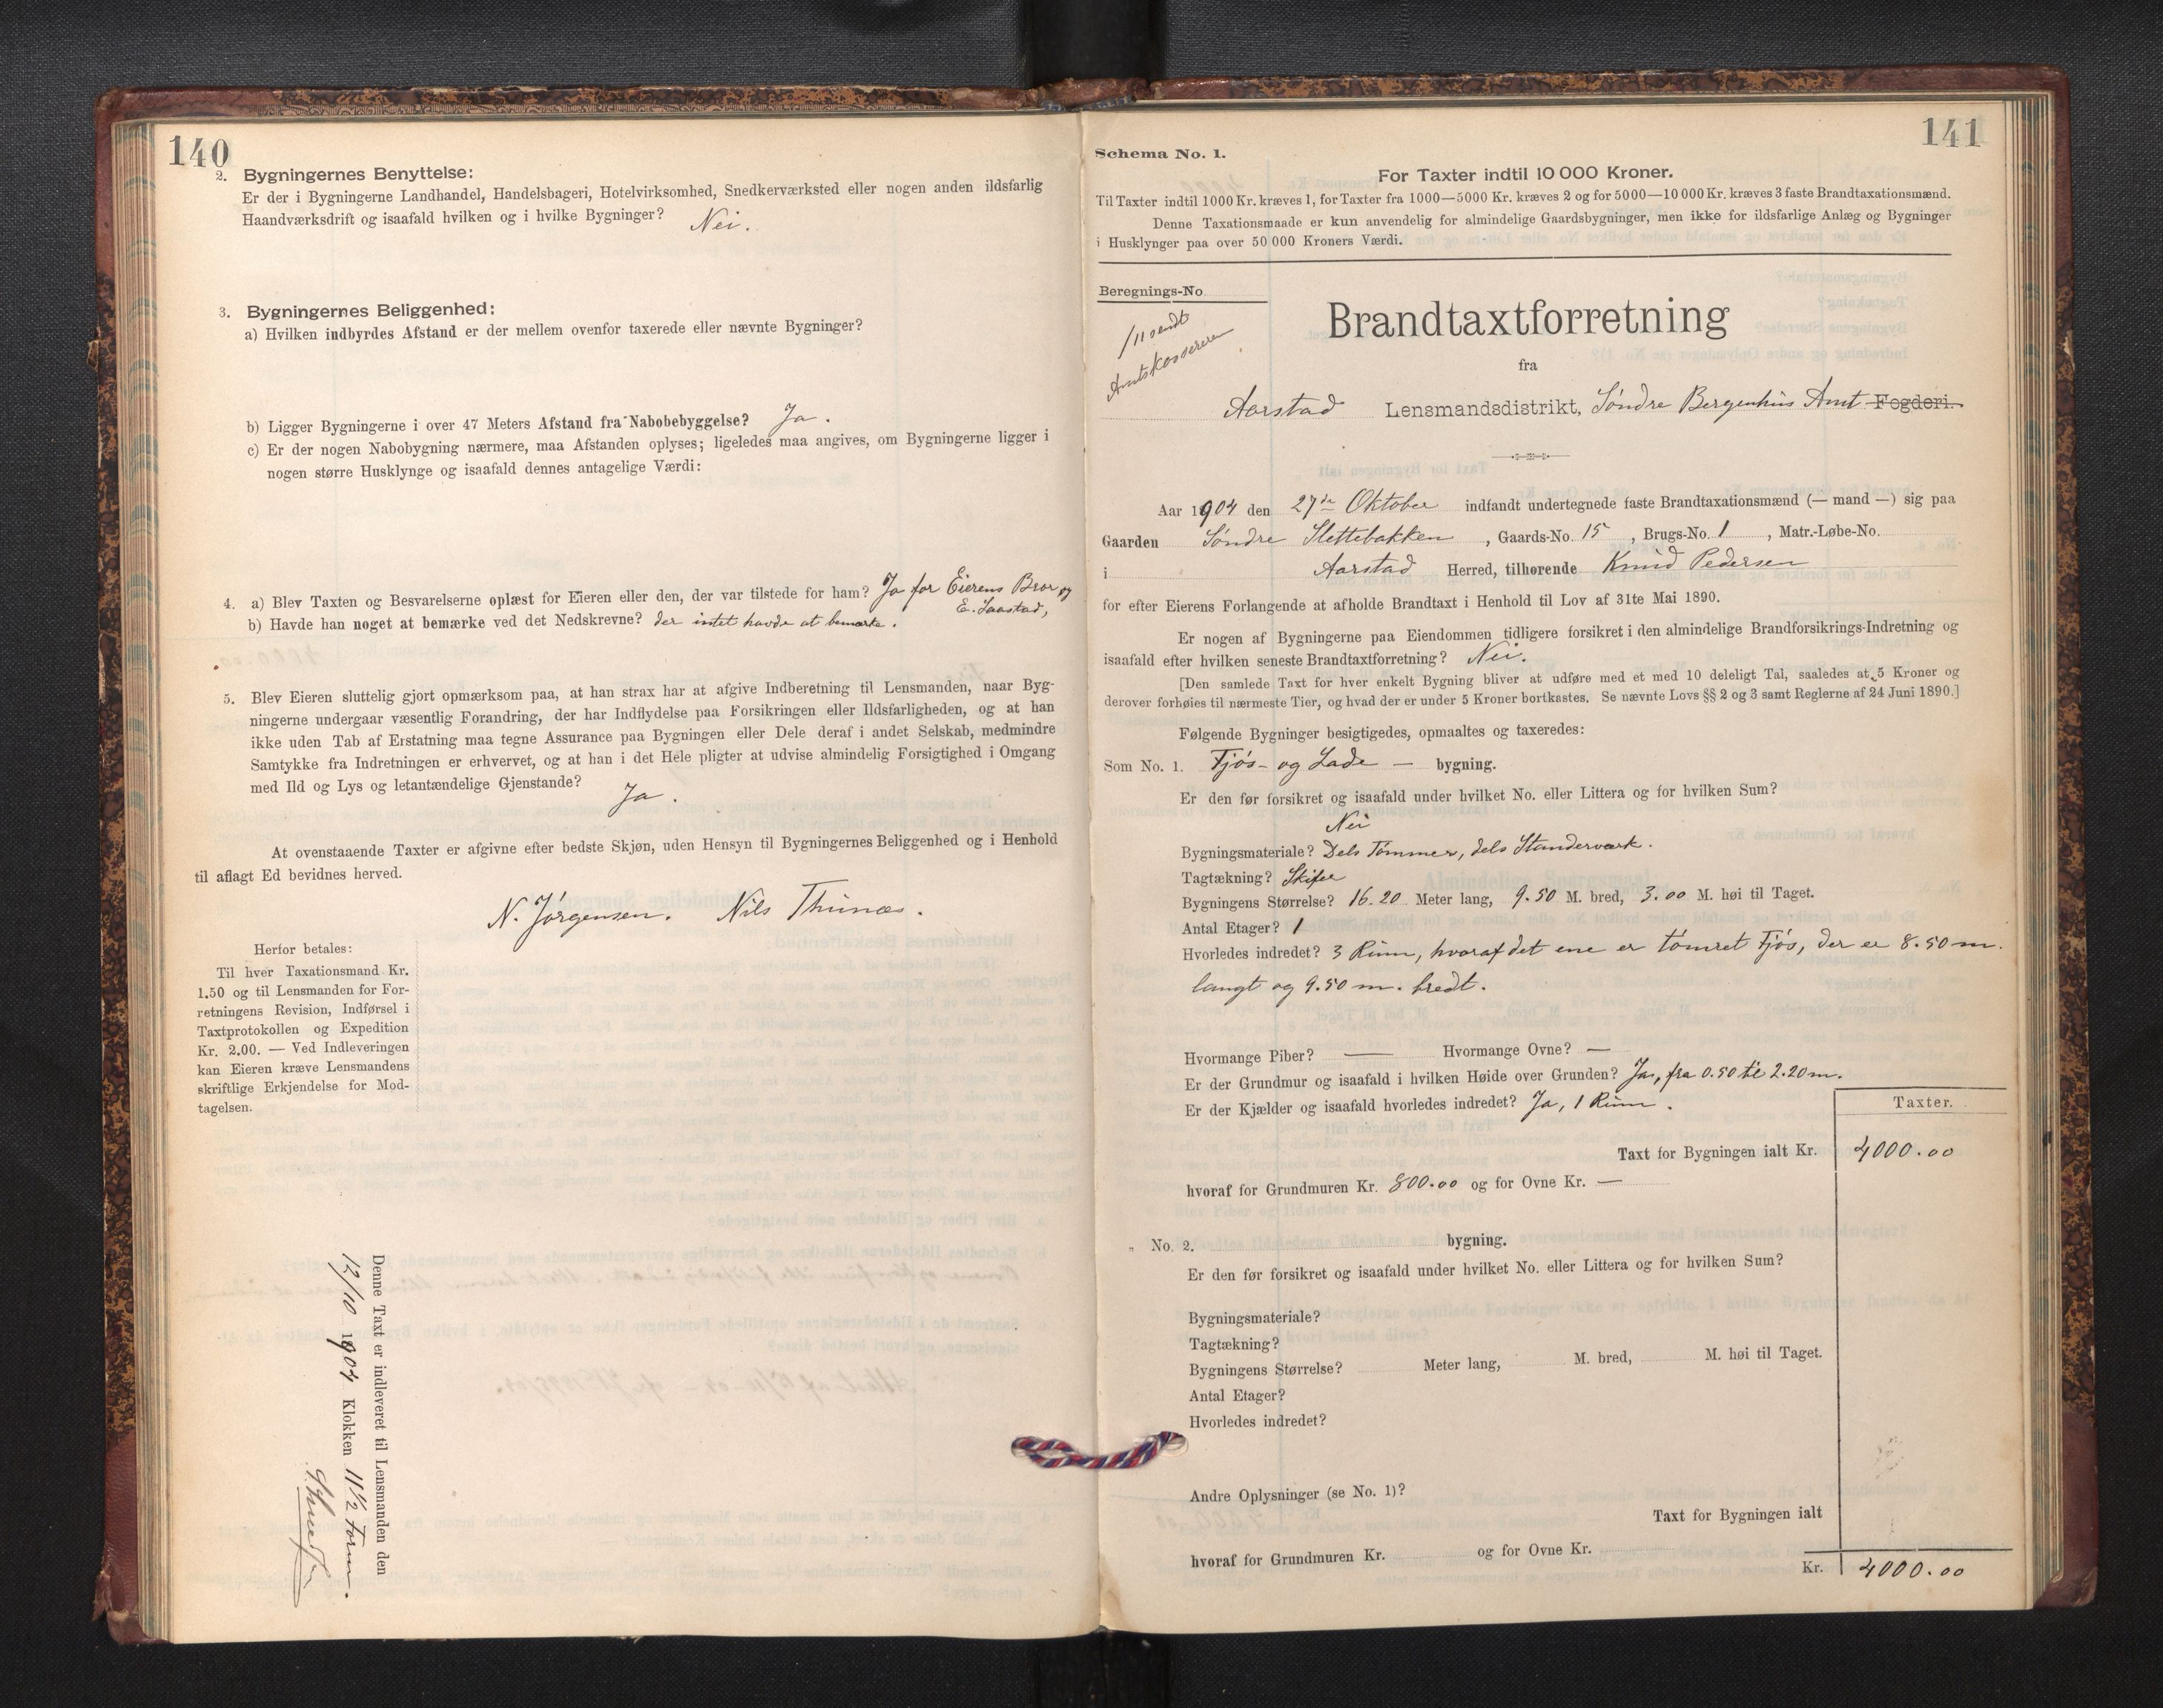 140
2. Bygningernes Benyttelse:
Er der i Bygningerne Landhandel, Handelsbageri, Hotelvirksomhed, Snedkerværksted eller nogen anden ildsfarlig
Haandværksdrift og isaafald hvilken og i hvilke Bygninger? Nei.
3. Bygningernes Beliggenhed:
a) Hvilken indbyrdes Afstand er der mellem ovenfor taxerede eller nævnte Bygninger?
b) Ligger Bygningerne i over 47 Meters Afstand fra Nabobebyggelse? Ja.
c) Er der nogen Nabobygning nærmere, maa Afstanden oplyses; ligeledes maa angives, om Bygningerne ligger i
nogen større Husklynge og isaafald dennes antagelige Værdi:
4. a) Blev Taxten og Besvarelserne oplæst for Eieren eller den, der var tilstede for ham? Ja for Eierens Bror og
E. Saastad,
b) Havde han noget at bemærke ved det Nedskrevne? der intet havde at bemærke.
5. Blev Eieren sluttelig gjort opmærksom paa, at han strax har at afgive Indberetning til Lensmanden, naar Byg-
ningerne undergaar væsentlig Forandring, der har Indflydelse paa Forsikringen eller Ildsfarligheden, og at han
ikke uden Tab af Erstatning maa tegne Assurance paa Bygningen eller Dele deraf i andet Selskab, medmindre
Samtykke fra Indretningen er erhvervet, og at han i det Hele pligter at udvise almindelig Forsigtighed i Omgang
med Ild og Lys og letantændelige Gjenstande?
Ja.
At ovenstaaende Taxter er afgivne efter bedste Skjøn, uden Hensyn til Bygningernes Beliggenhed og i Henhold
til aflagt Ed bevidnes herved.
N. Jörgensen. Nils Thunæs.
Herfor betales:
Til hver Taxationsmand Kr.
1.50 og til Lensmanden for For-
retningens Revision, Indførsel i
Taxtprotokollen og Expedition
Kr. 2.00. — Ved Indleveringen
kan Eieren kræve Lensmandens
skriftlige Erkjendelse for Mod-
tagelsen.
Denne Taxt er indleveret til Lensmanden den
12/10 1904 Klokken 11½ Form.
141
Schema No. 1.
For Taxter indtil 10 000 Kroner.
Til Taxter indtil 1000 Kr. kræves 1, for Taxter fra 1000—5000 Kr. kræves 2 og for 5000—10 000 Kr. kræves 3 faste Brandtaxationsmænd.
Denne Taxationsmaade er kun anvendelig for almindelige Gaardsbygninger, men ikke for ildsfarlige Anlæg og Bygninger
i Husklynger paa over 50 000 Kroners Værdi.
Beregnings-No.
/11 sendt
Amtskassereren
Brandtaxtforretning
fra
Aarstad Lensmandsdistrikt, Söndre Bergenhus Amt Fogderi.
Aar 1904 den 27de Oktober indfandt undertegnede faste Brandtaxationsmænd (— mand —) sig paa
Gaarden Söndre Slettebakken, Gaards-No. 15, Brugs-No. 1, Matr.-Løbe-No.
i Aarstad Herred, tilhørende Knud Pedersen
for efter Eierens Forlangende at afholde Brandtaxt i Henhold til Lov af 31te Mai 1890.
Er nogen af Bygningerne paa Eiendommen tidligere forsikret i den almindelige Brandforsikrings-Indretning og
isaafald efter hvilken seneste Brandtaxtforretning? Nei.
[Den samlede Taxt for hver enkelt Bygning bliver at udføre med et med 10 deleligt Tal, saaledes at 5 Kroner og
derover forhøies til nærmeste Tier, og hvad der er under 5 Kroner bortkastes. Se nævnte Lovs §§ 2 og 3 samt Reglerne af 24 Juni 1890.]
Følgende Bygninger besigtigedes, opmaaltes og taxeredes:
Som No. 1. Fjös- og Lade — bygning.
Er den før forsikret og isaafald under hvilket No. eller Littera og for hvilken Sum?
Nei
Bygningsmateriale? Dels Tömmer, dels Standerværk.
Tagtækning? Skifer
Bygningens Størrelse? 16.20 Meter lang, 9.50 M. bred, 3.00 M. høi til Taget.
Antal Etager? 1
Hvorledes indredet? 3 Rum, hvoraf det ene er tömret Fjös, der er 8.50 m.
langt og 9.50 m. bredt.
Hvormange Piber? — Hvormange Ovne? —
Er der Grundmur og isaafald i hvilken Høide over Grunden? Ja, fra 0.50 til 2.20 m.
Er der Kjælder og isaafald hvorledes indredet? Ja, 1 Rum.
Taxter.
Taxt for Bygningen ialt Kr. 4000.00
hvoraf for Grundmuren Kr. 800.00 og for Ovne Kr. —
„ No. 2. bygning.
Er den før forsikret og isaafald under hvilket No. eller Littera og for hvilken Sum?
Bygningsmateriale?
Tagtækning?
Bygningens Størrelse? Meter lang, M. bred, M. høi til Taget.
Antal Etager?
Hvorledes indredet?
Andre Oplysninger (se No. 1)?
Taxt for Bygningen ialt
hvoraf for Grundmuren Kr. og for Ovne Kr.
Kr. 4000.00